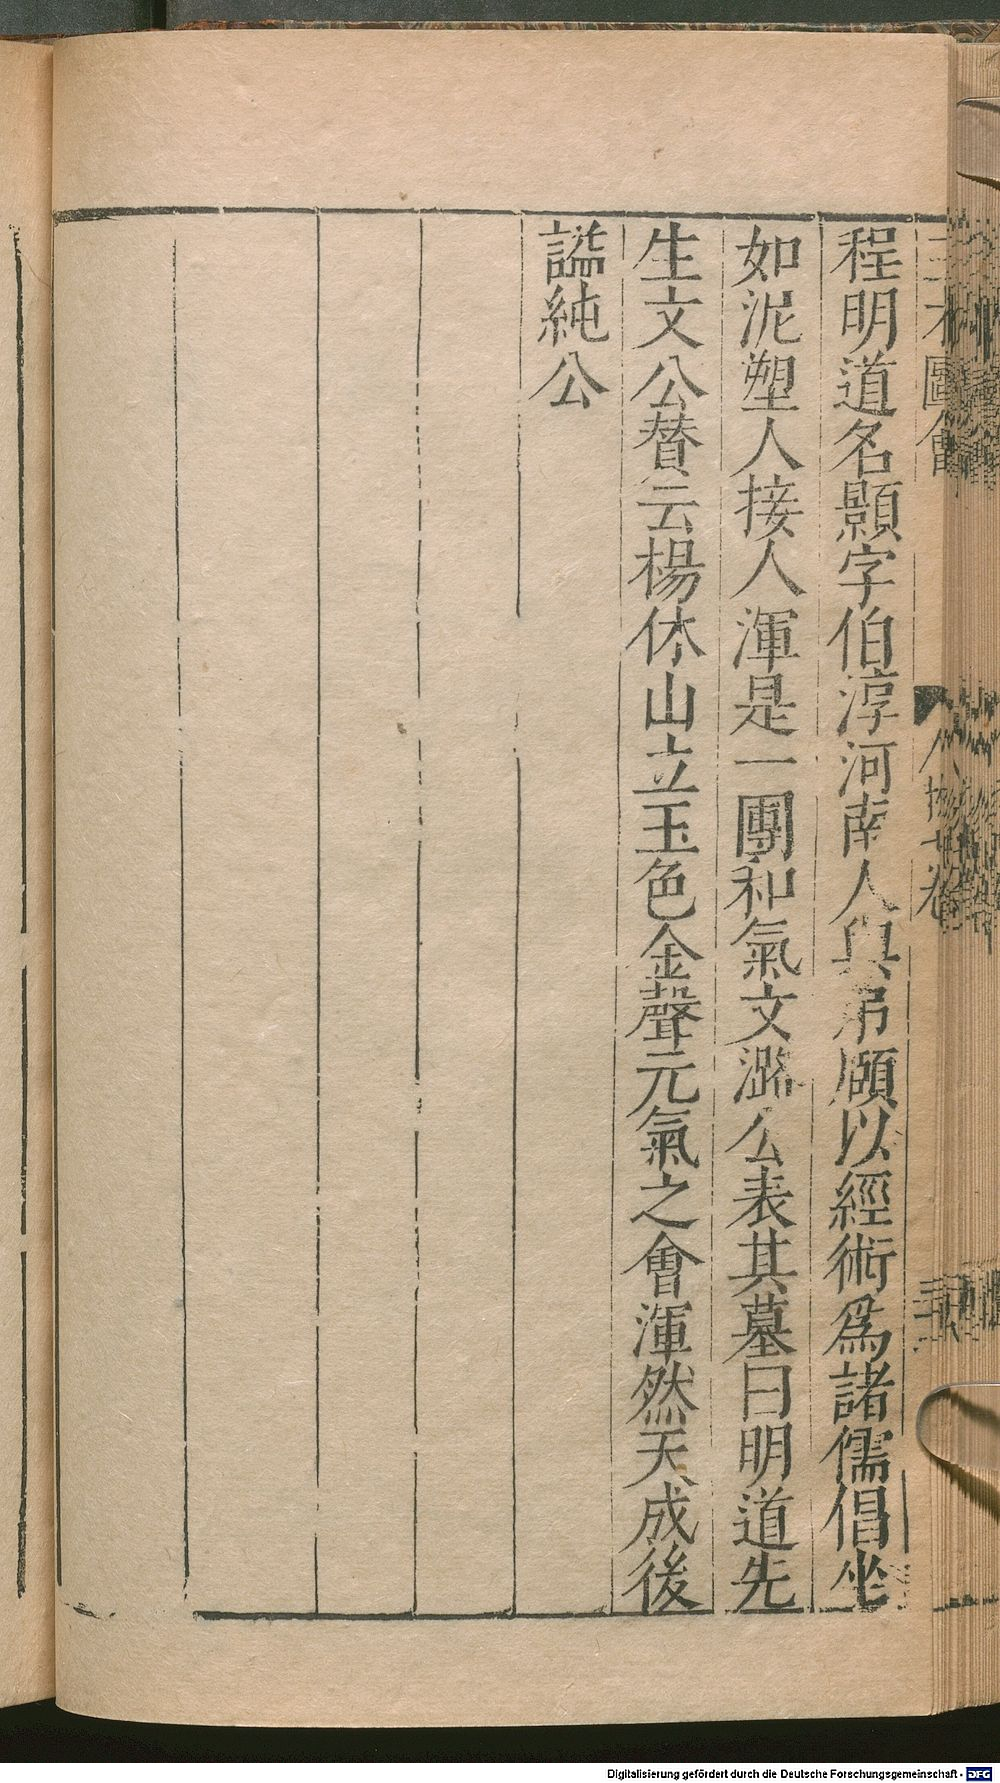 三才圖會 人物七卷
程明道名顥字伯淳河南人與弟頤以經術爲諸儒倡坐
如泥塑人接人渾是一團和氣文潞公表其墓曰明道先
生文公替云楊休山立玉色金聲元氣之會渾然天成後
諡純公
Digitalisierung gefördert durch die Deutsche Forschungsgemeinschaft - DFG